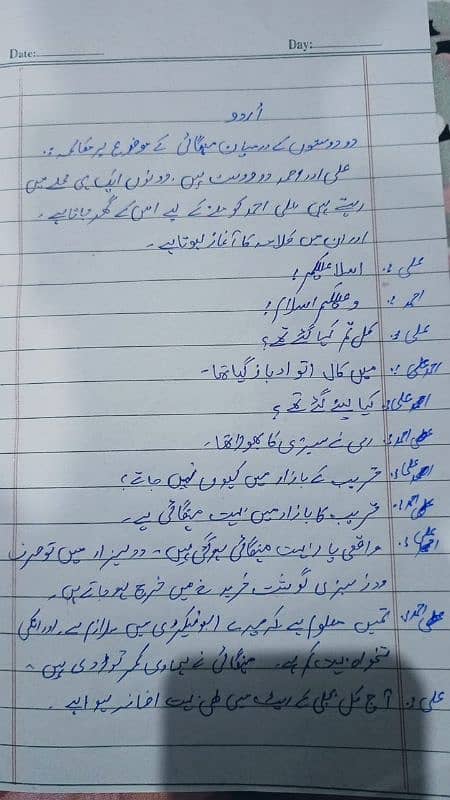 Date: Day:
اُردو
دو دوستوں کے درمیان مہنگائی کے موضوع پر مکالمہ :
علی اور احمد دو دوست ہیں ۔ دونوں ایک ہی محلے میں
رہتے ہیں علی احمد کو ملنے کے لیے اس کے گھر جاتا ہے ۔
اور ان میں کا آغاز ہوتا ہے ۔
علی : اسلام علیکم !
احمد : وعلیکم اسلام !
علی : کل تم کیا گئے تھے ؟
احمد : میں کال اتوار بازار گیا تھا ۔
علی : کیا لینے گئے تھے ؟
احمد : سبزی کا تھا ۔
علی : قریب کے بازار میں کیوں نہیں جاتے ؟
احمد : قریب کا بازار میں بہت مہنگائی ہے ۔
علی : واقعی یار بہت مہنگائی ہوگئی ہیں ۔ دو ہزار میں تو صرف
سبزی گوشت خریدنے میں خرچ ہو جاتے ہیں ۔
احمد : تمہیں معلوم ہے کہ میرے ابو فیکٹری میں ملازم ہے ۔ اور انکی
تنخواہ بہت کم ہے ۔ مہنگائی نے ہماری کمر توڑ دی ہیں ۔
علی : آج کل بجلی کے ریٹ میں بھی بہت اضافہ ہوا ہے ۔